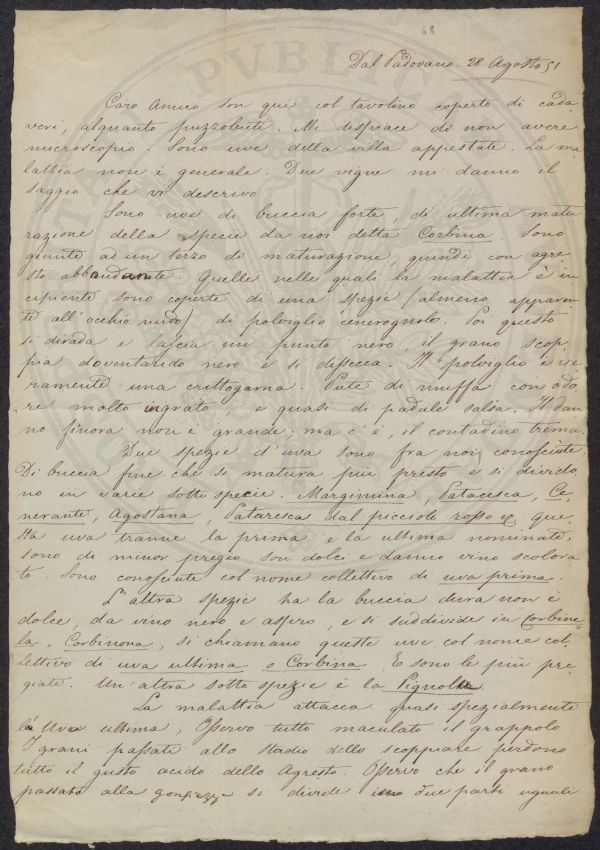 48
Dal Padovano 28 Agosto 51
Caro Amico son qui col tavolino coperto di cada
veri, alquanto puzzolente. Mi dispiace di non avere
microscopio. Sono uve della villa appestate. La ma
lattia non è generale. Due vigne mi danno il
saggio che vi descrivo
Sono uve di buccia forte, di ultima matu
razione della specie da noi detta Corbina. Sono
giunte ad un terzo di maturazione, quindi con agre
sto abbondante. Quelle nelle quali la malattia è in
cipiente sono coperte di una spezie (almeno apparen
te all'occhio nudo) di polviglio cenerognolo. Poi questo
si dirada e lascia un punto nero il grano scop
pia doventando nero e si dissecca. Il polviglio è ve
ramente una crittogama. Pute di muffa con odo
re molto ingrato, e quasi di padule salsa. Il dan
no finora non è grande: ma c'è, il contadino trema.
Due spezie d'uva sono fra noi conosciute.
Di buccia fine che si matura più presto e si divido
no in varie sotto specie. Margemina, Patacesca, Ce
nerante, Agostana, Pataresca dal picciolo rosso &c que
sta uva tranne la prima e la ultima nominate,
sono di minor pregio son dolci e danno vino scolora
to. Sono conosciute col nome collettivo di uva prima.
L'altra spezie ha la buccia dura non è
dolce, da vino nero e aspro, e si suddivide in Corbine
la, Corbinona, si chiamano queste uve col nome col
lettivo di uva ultima o Corbina. E sono le più pre
giate. Un'altra sotto spezie è la Pignola
La malattia attacca quasi spezialmente
la Uva ultima, Osservo tutto maculato il grappolo
I grani passati allo stadio dello scoppiare perdono
tutto il gusto acido dello Agresto. Osservo che il grano
passato alla gonfiezza si divide in due parti uguali